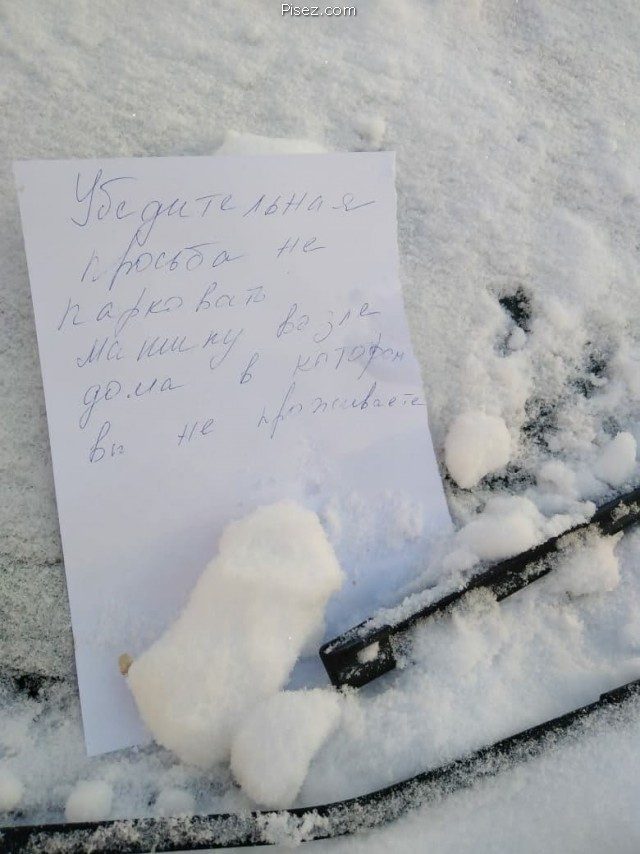 Pisez.com
Убедительная
просьба не
парковать
машину возле
дома в катором
вы не проживаете